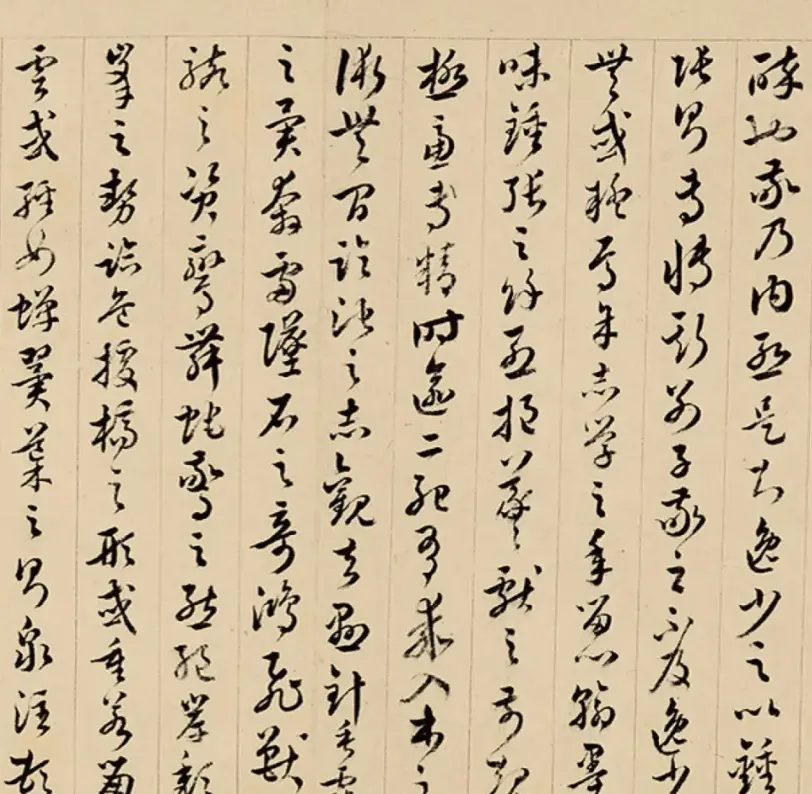 醉也敬乃內慚是知逸少之比鍾
張則專博斯別子敬之不及逸少
無或疑焉余志學之年留心翰墨
味鍾張之餘烈挹羲獻之前規
極慮專精時逾二紀有乖入木之
術無間臨池之志觀夫懸針垂露
之異奔雷墜石之奇鴻飛獸
駭之資鸞舞蛇驚之態絕岸頹
峯之勢臨危據槁之形或重若崩
雲或輕如蟬翼導之則泉注頓